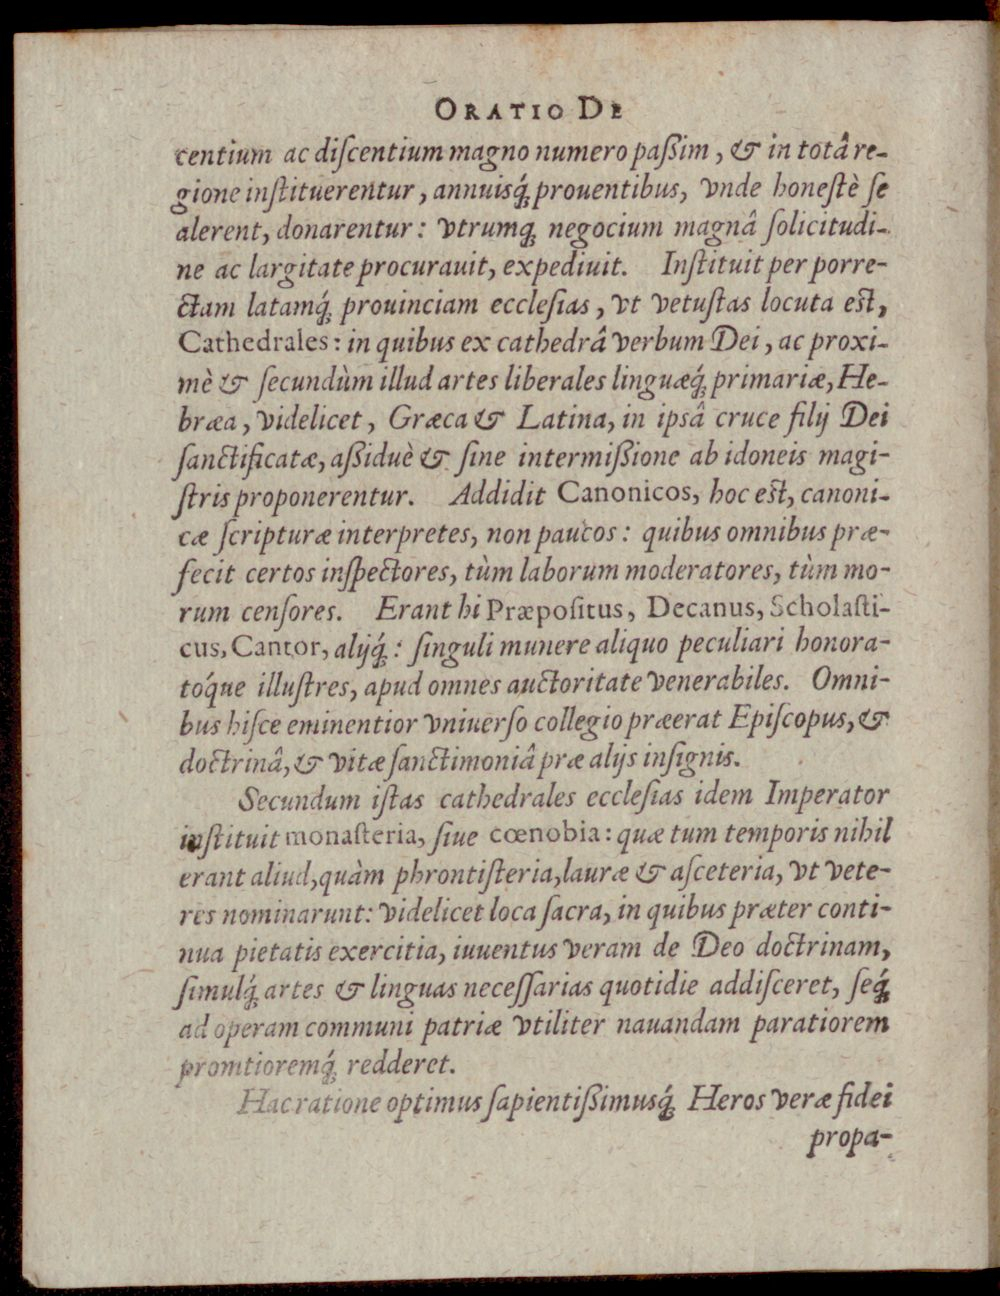 ORATIO DE
centium ac diſcentium magno numero paßim, & in totâ re-
gione inſtituerentur, annuisq́; prouentibus, vnde honeſtè ſe
alerent, donarentur: vtrumq; negocium magnâ ſolicitudi-
ne ac largitate procurauit, expediuit. Inſtituit per porre-
ctam latamq́; prouinciam eccleſias, vt vetuſtas locuta eſt,
Cathedrales: in quibus ex cathedrâ verbum Dei, ac proxi-
mè & ſecundùm illud artes liberales linguæq́; primariæ, He-
bræa, videlicet, Græca & Latina, in ipsâ cruce filij Dei
ſanctificatæ, aßiduè & ſine intermißione ab idoneis magi-
ſtris proponerentur. Addidit Canonicos, hoc eſt, canoni-
cæ ſcripturæ interpretes, non paucos: quibus omnibus præ-
fecit certos inſpectores, tùm laborum moderatores, tùm mo-
rum cenſores. Erant hi Præpoſitus, Decanus, Scholaſti-
cus, Cantor, alijq́;: ſinguli munere aliquo peculiari honora-
tóque illuſtres, apud omnes auctoritate venerabiles. Omni-
bus hiſce eminentior vniuerſo collegio præerat Epiſcopus, &
doctrinâ, & vitæ ſanctimoniâ præ alijs inſignis.
Secundum iſtas cathedrales eccleſias idem Imperator
inſtituit monaſteria, ſiue cœnobia: quæ tum temporis nihil
erant aliud, quàm phrontiſteria, lauræ & aſceteria, vt vete-
res nominarunt: videlicet loca ſacra, in quibus præter conti-
nua pietatis exercitia, iuuentus veram de Deo doctrinam,
ſimulq́; artes & linguas neceſſarias quotidie addiſceret, ſeq́;
ad operam communi patriæ vtiliter nauandam paratiorem
promtioremq́; redderet.
Hac ratione optimus ſapientißimusq́; Heros veræ fidei
propa-